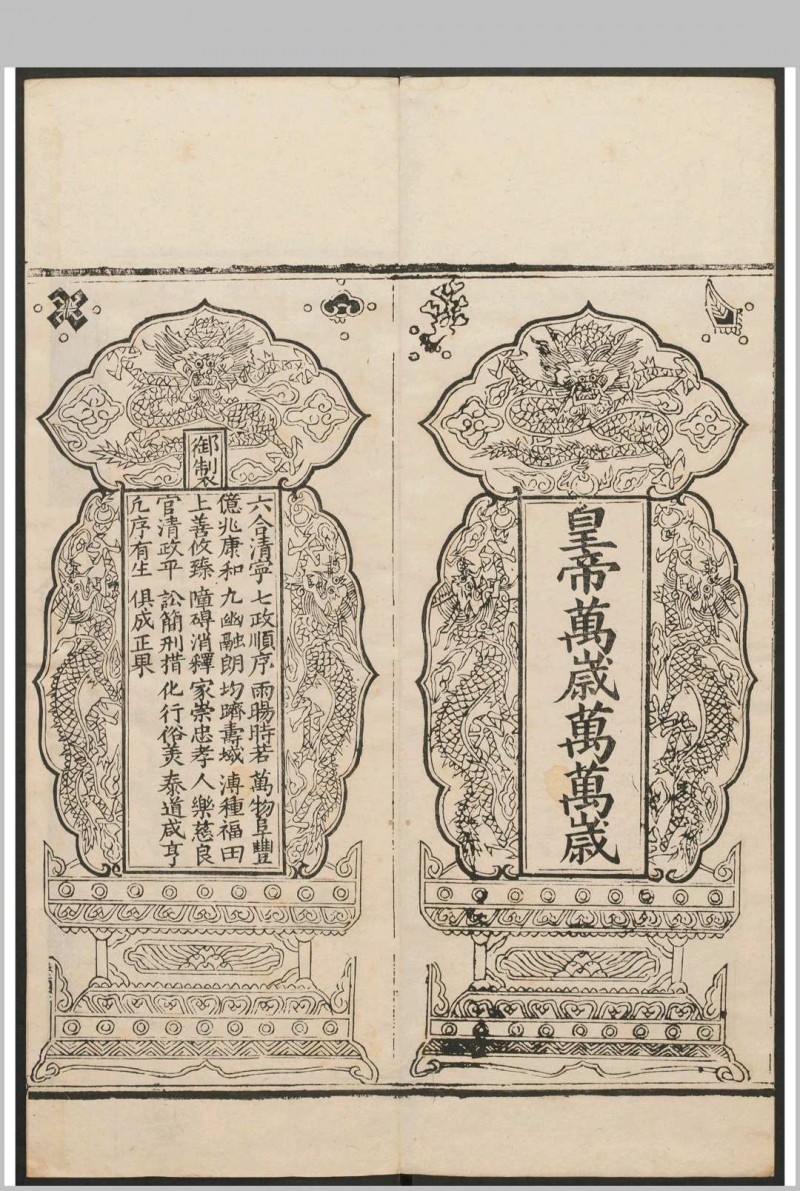 皇帝萬歲萬萬歲
御製
六合清寧 七政順序 雨暘時若 萬物阜豐
億兆康和 九幽融朗 均躋壽域 溥種福田
上善攸臻 障碍消釋 家崇忠孝 人樂慈良
官清政平 訟簡刑措 化行俗美 泰道咸亨
凢序有生 俱成正果